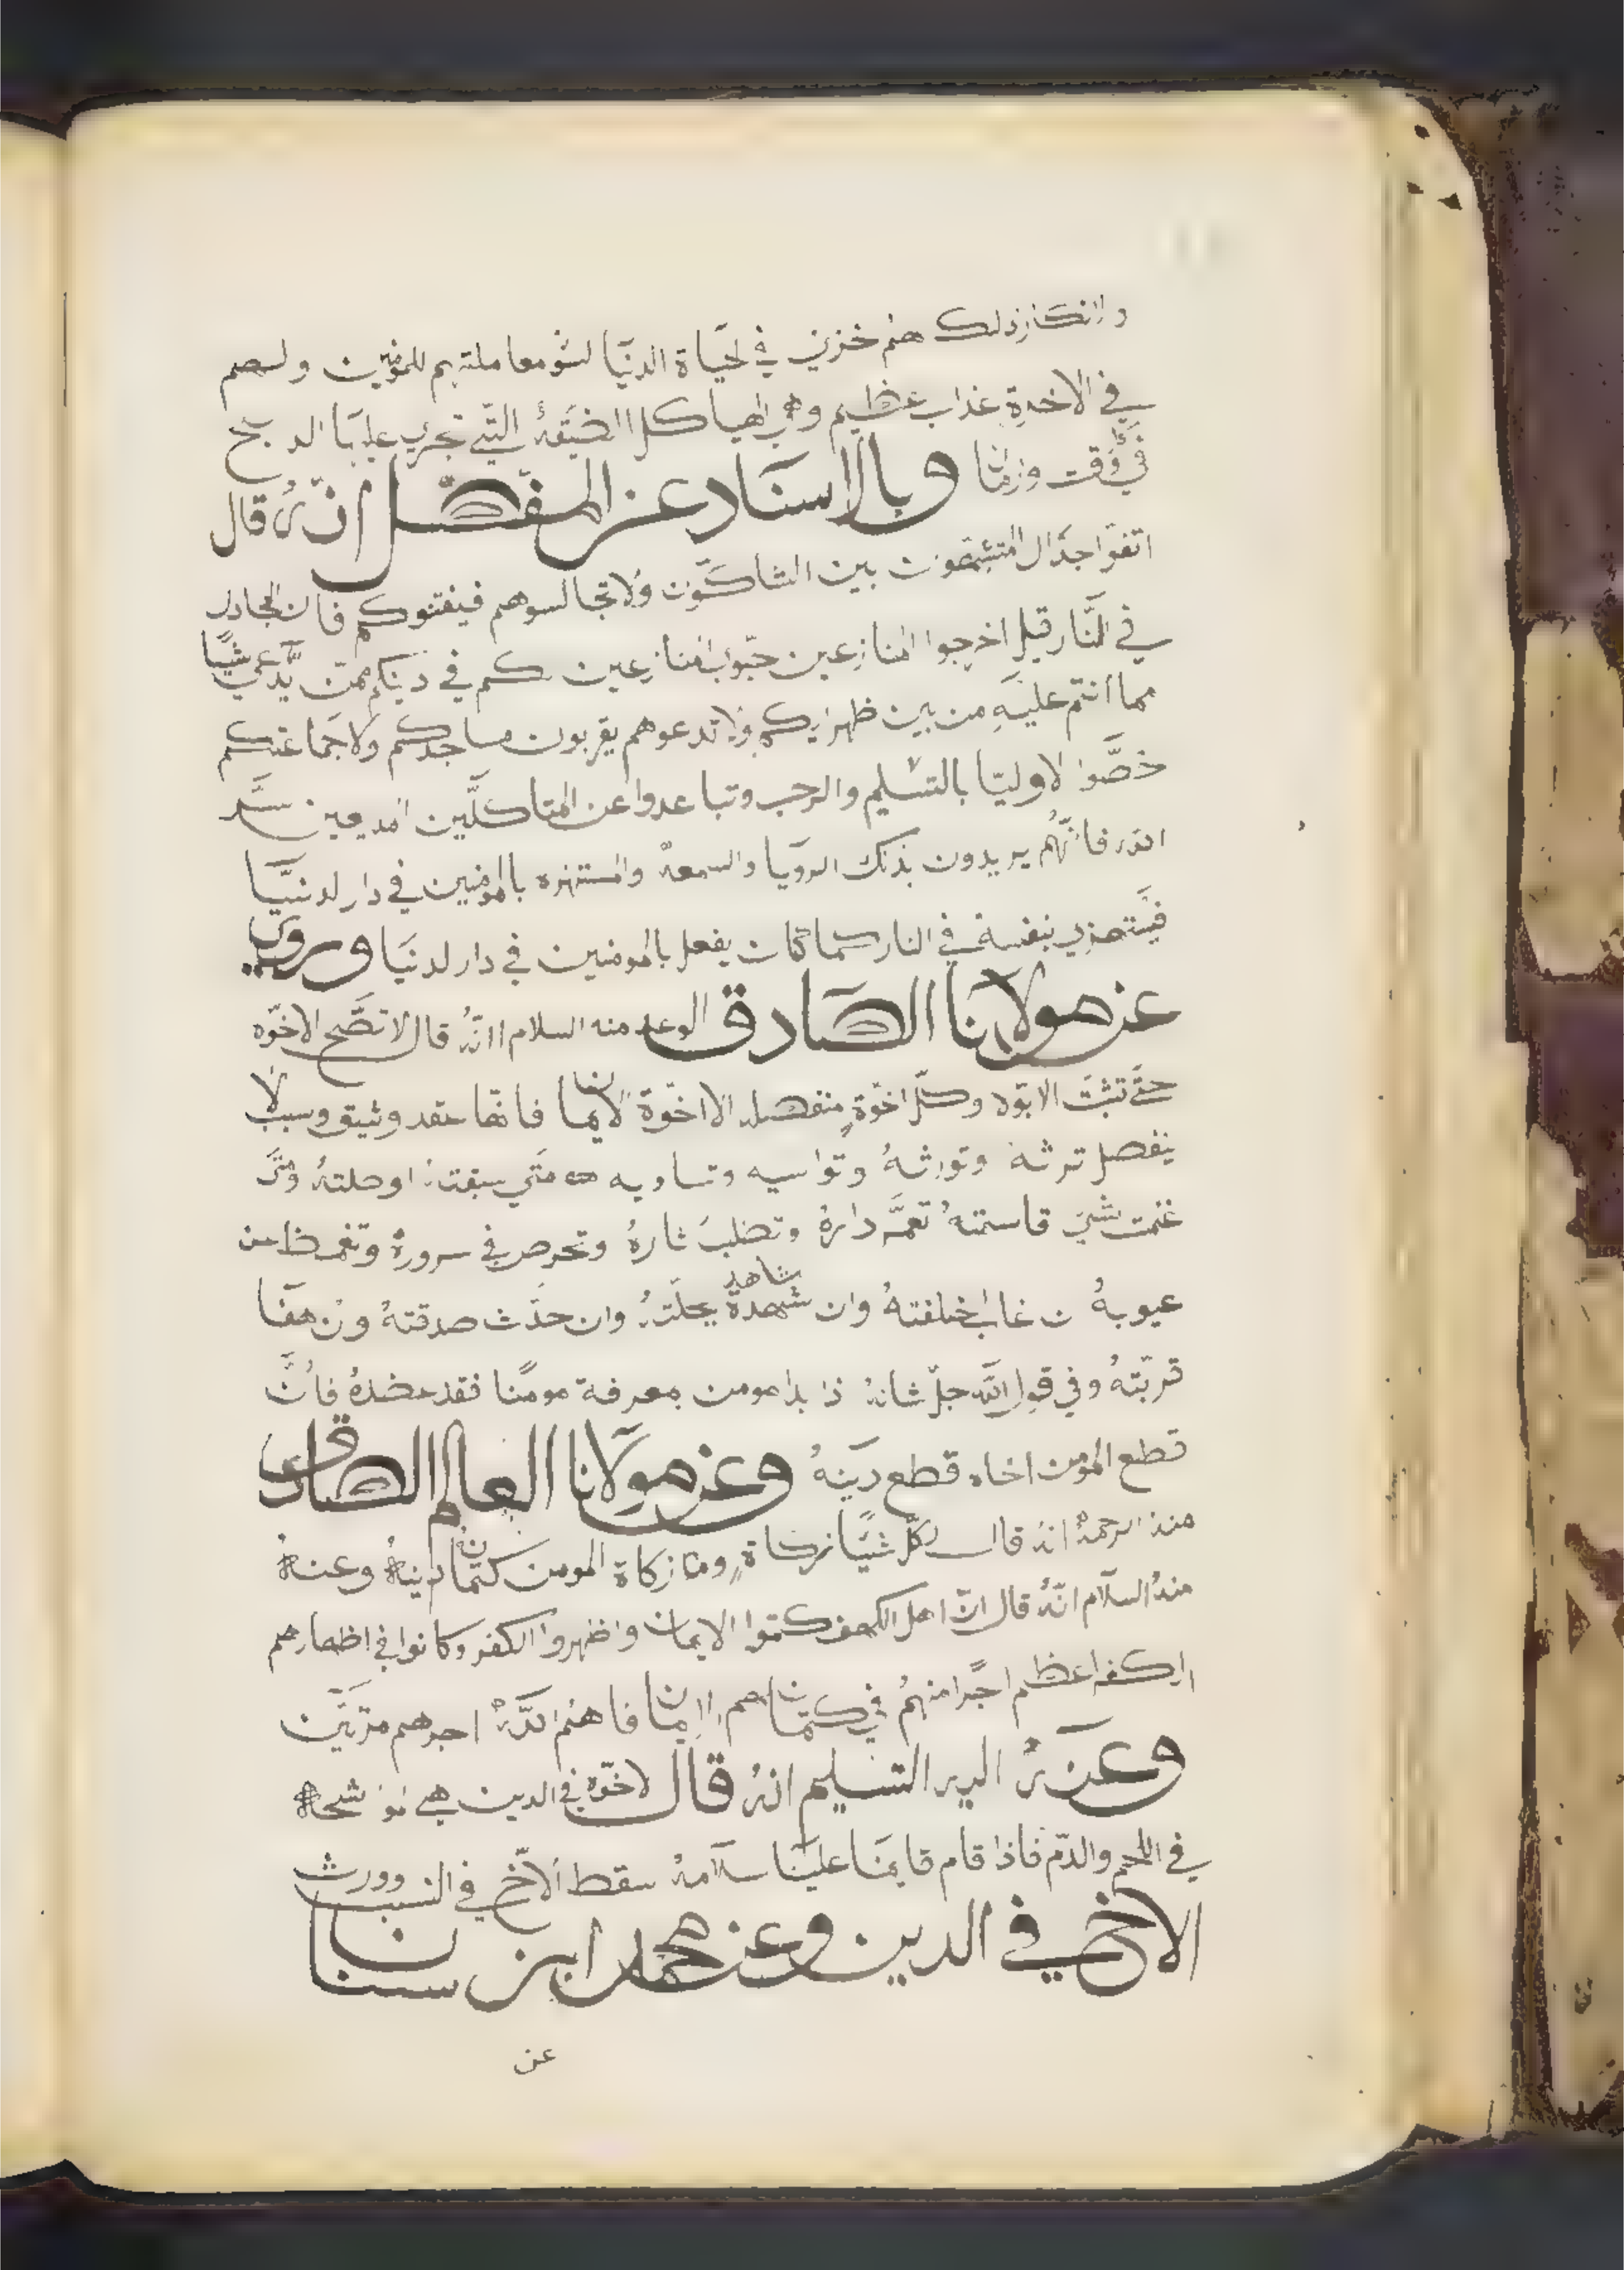 وانكان ذلك هم خزي في لحياة الدنيا لسو معاملتهم للمومنين ولهم
في الاخرة عذاب عظيم وهي الهياكل الضيقة التي تجري عليها الدبح
في وقت وزمان وبالاسناد عن المفضل انه قال
اتقوا جدال المتشبهون بين الشاكون ولا تجالسوهم فيفتنوكم فان الجادل
في النار قيل اخرجوا المنازعين كم في دينكم ممن يدعي شيا
مما انتم عليه من بين ظهرانيكم ولا تدعوهم يقربون مساجدكم ولا جماعتكم
خصوا لاوليا بالتسليم والرحب وتباعدوا عن المتاكلين المديعين سر
الله فانهم يريدون بذلك الرويا والسمعة والمستهزه بالمومنين في دار لدنيا
فيستهزي بنفسه في النار كما كان يفعل بالمومنين في دار لدنيا وروي
عن مولانا الصادق الوعد منه السلام انه قال لا تصح الاخوه
حتى تثبت الابوه وكل اخوة منفصله الا اخوة لايمان فانها عقد وثيق وسبب لا
ينفصل ترثه وتورثه وتواسيه وتساويه متى سبقته اوصلته ومتى
غنمت شي قاسمته تعمر داره وتطلب ثاره وتحرص في سروره وتغمظ من
عيوبه ن غاب خلفته وان شهدة شاهد بجلته وان حدث صدقته ون هفا
قربته وفي قول الله جل شانه ذا بدا مومن بمعرفة مومنا فقد عضده فان
قطع المومن اخاه قطع دينه وعن مولانا العالم الصادق
منه الرحمة انه قال لكل شيا زكاة وما زكاة المومن كتمان دينه وعنه
منه السلام انه قال ان اهل الكهف كتموا الايمان واظهروا الكفر وكانوا في اظهارهم
الكفر اعظم اجرا منهم في كتمانهم الايمان فاهم الله اجرهم مرتين
وعنه اليه التسليم انه قال لاخوه في الدين هي
في اللحم والدم فاذا قام قايمنا علينا سلامه سقط الاخ في النسب وورث
الاخ في الدين وعن محمد ابن سنان
عن